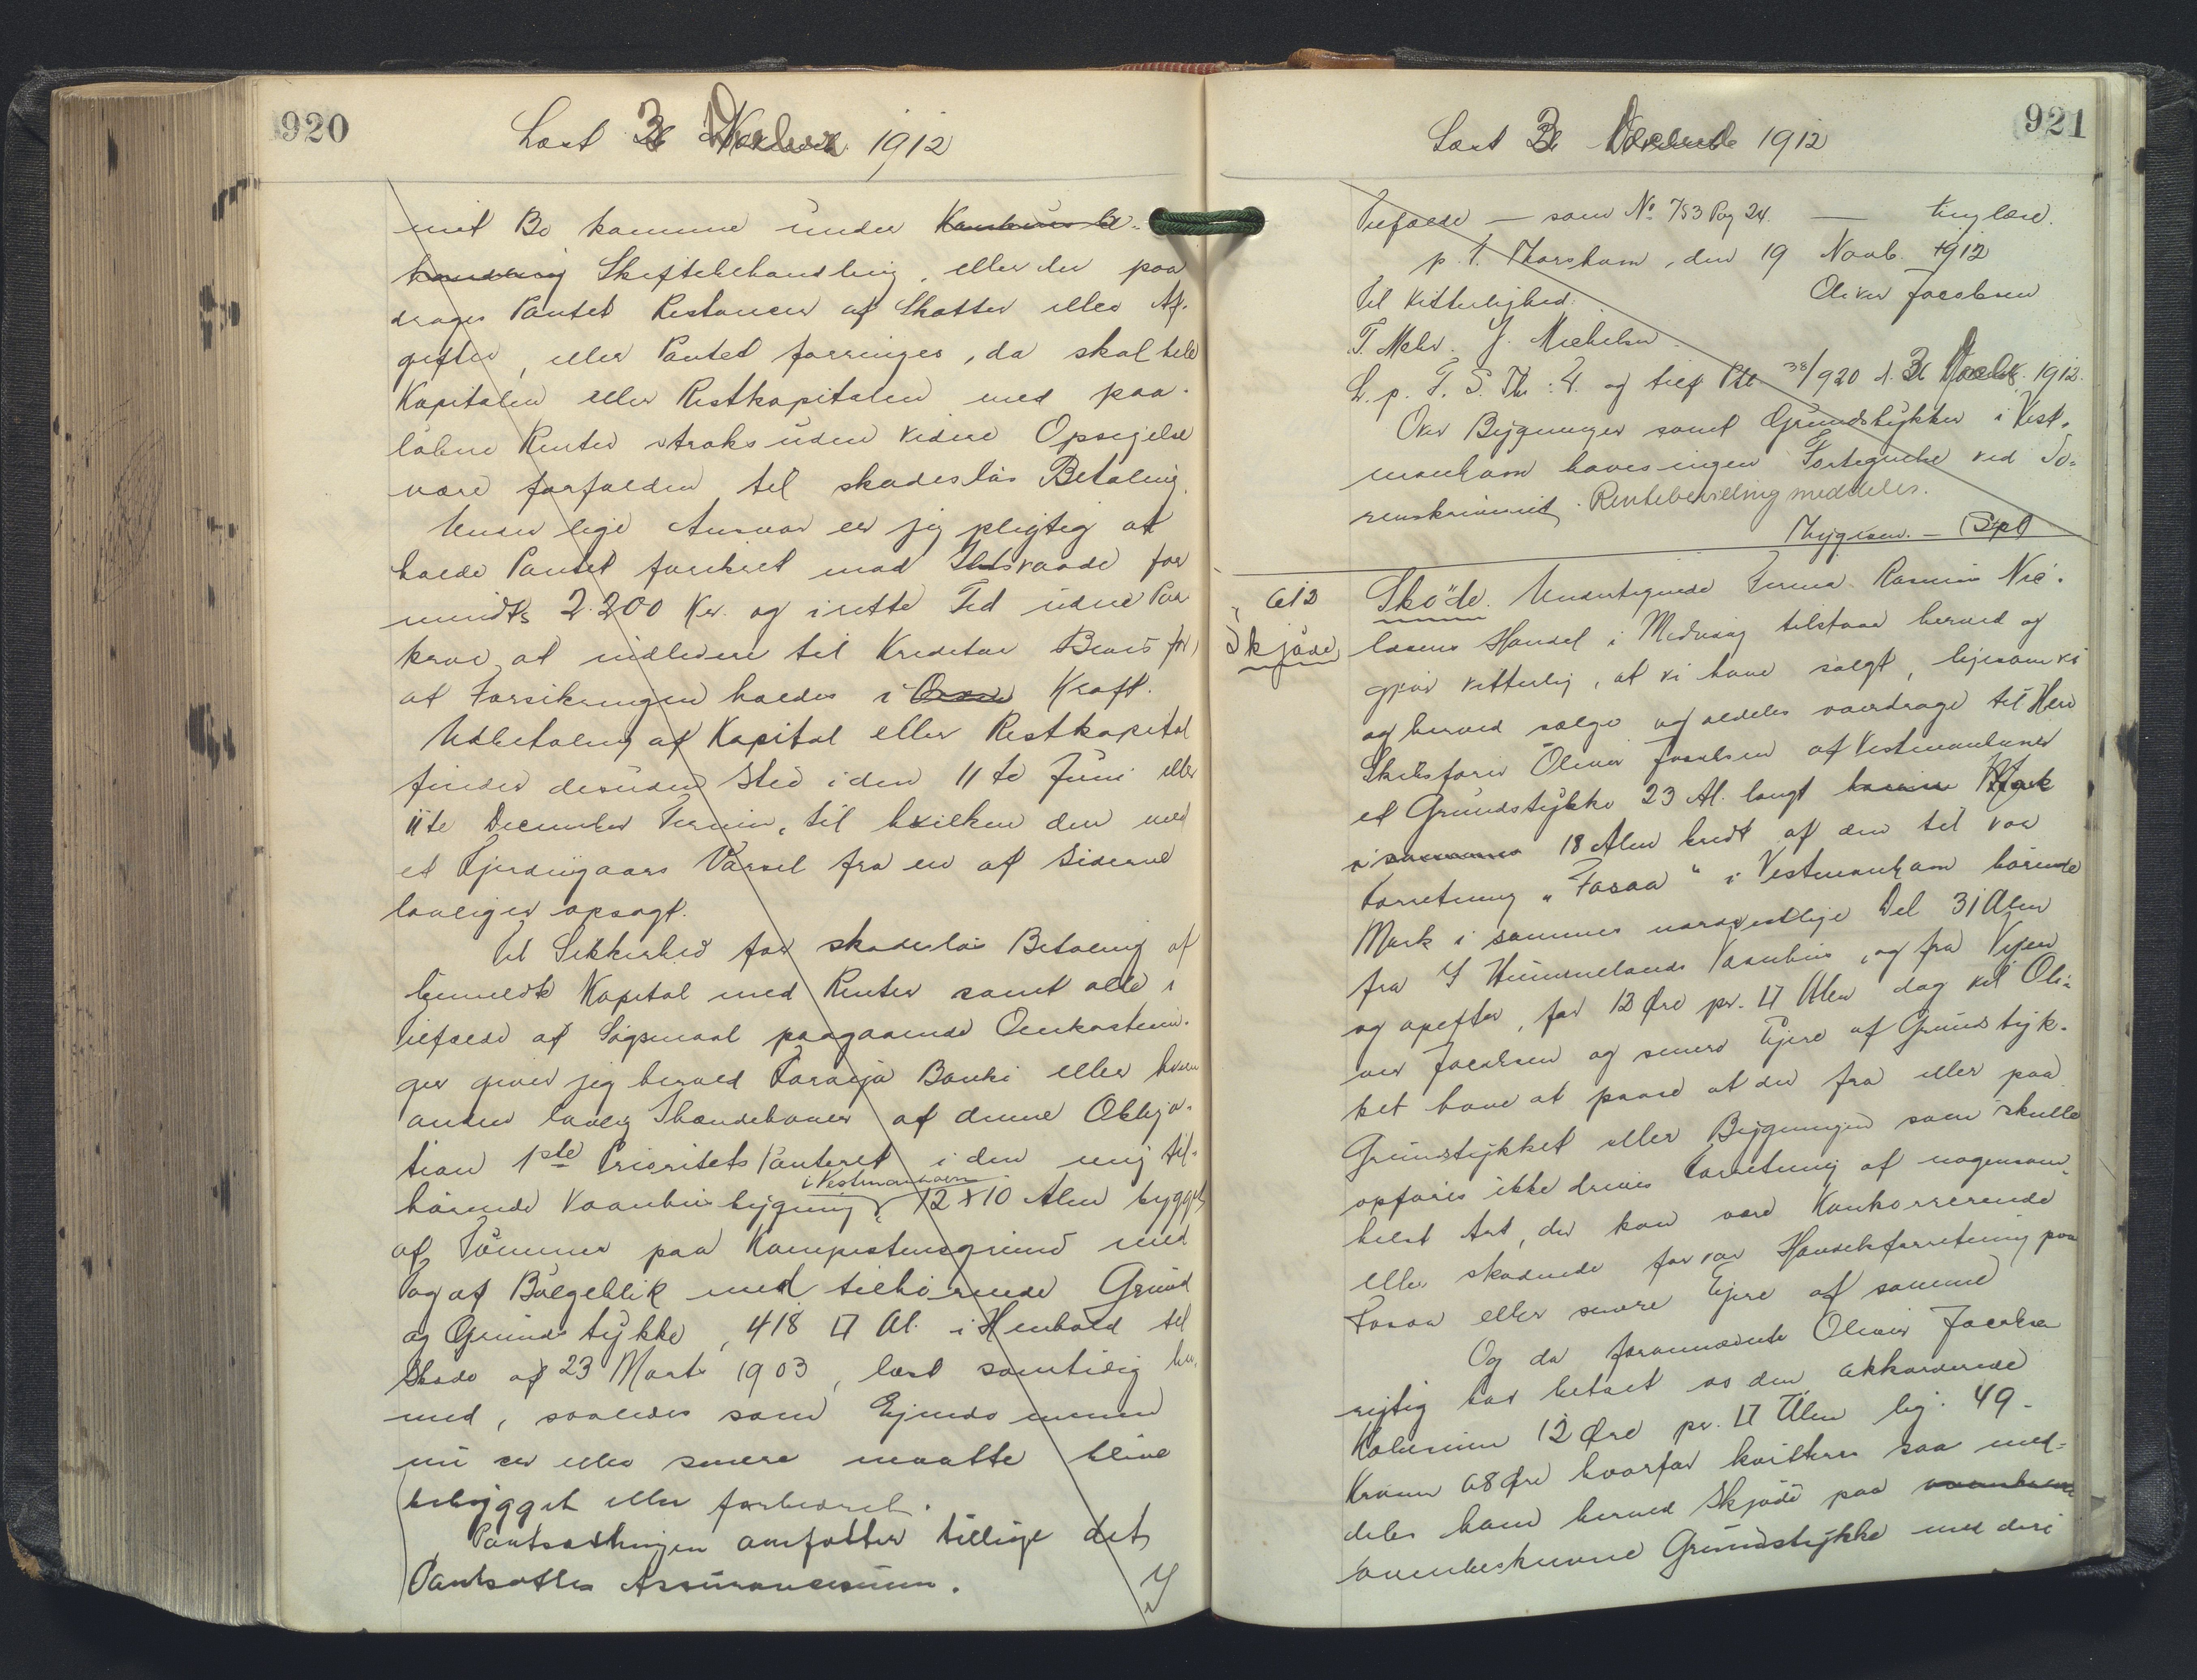 920
Læst 3 December 1912
mit Bo komme under Konkursbe-
handling Skiftebehandling, eller der paa
drages Pantet Restancer af Skatter eller Af-
gifter, eller Pantet forringes, da skal hele
Kapitalen eller Restkapitalen med paa-
løbne Renter straks uden videre Opsigelse
være forfalden til skadesløs Betaling.
Under lige Ansvar er jeg pligtig at
holde Pantet forsikret mod Ildsvaade for
mindst 2.200 Kr. og i rette Tid uden Paa
krav at indlevere til Kreditor Bevis for,
at Forsikringen holdes i Kraft.
Udbetaling af Kapital eller Restkapital
finder desuden Sted i den 11te Juni eller
11te December Termin, til hvilken den med
et Fjerdingaars Varsel fra en af Siderne
lovligen opsagt.
Til Sikkerhed for skadesløs Betaling af
bemeldte Kapital med Renter samt alle i
Tilfælde af Søgsmaal paagaaende Omkostnin-
ger giver jeg herved Føroya Banki eller hvem
anden lovlig Ihændehaver af denne Obliga-
tion 1ste Prioritets Panteret i den mig til-
i Vestmanhavn
hørende Vaanhusbygning 12 x 10 Alen bygget
af Tømmer paa Kampestensgrund med
Tag af Bølgeblik med tilhørende Grund
og Grundstykke, 418 □ Al. i Henhold til
Skøde af 23 Marts 1903, læst samtidig her-
med, saaledes som Ejendommen
nu er eller senere maatte blive
bebygget eller forbedret.
Pantsætningen omfatter tillige det
Pantsattes Assurancesum.
921
Læst 3 December 1912
Tilfælde — som No 753 Pag 24. — tinglæst.
p. t. Thorshavn, den 19 Novb. 1912
Til Vitterlighed: Oliver Jacobsen
T. Mohr. J. Michelsen.
L. p. F. S. Th: V. og tilf Ptb 38/920 d. 3 Decbr. 1912.
Over Bygninger samt Grundstykker i Vest-
manhavn haves ingen Fortegnelse ved So-
renskriveriet. Rentebevilling meddeles.
Thygesen. — Spl
612
Skjøde
Skøde. Undertegnede Firma Rasmus Nic-
lasens Handel i Midvaag tilstaar herved og
gjør vitterlig, at vi have solgt, ligesom vi
og herved sælge og aldeles overdrage til Herr
Skibsfører Oliver Jacobsen af Vestmanhavn
et Grundstykke 23 Al. langt
18 Alen bredt af den til vor
Forretning "Fossa" i Vestmanhavn hørende
Mark i sammes nordvestlige Del 31 Alen
fra J Hummelands Vaanhus, og fra Vejen
og opefter, for 12 Øre pr. □ Alen dog vil Oli-
ver Jacobsen og senere Ejere af Grundstyk-
ket have at passe at der fra eller paa
Grundstykket eller Bygningen som skulle
opføres ikke drives Forretning af nogensom-
helst Art, der kan være Konkurrerende
eller skadende for vor Handelsforretning paa
Fossa eller senere Ejere af samme
Og da forannævnte Oliver Jacobsen
rigtig har betalt os den akkorderede
Købesum 12 Øre pr. □ Alen lig: 49-
Kroner 68 Øre hvorfor kvitteres saa med-
deles ham herved Skjøde paa
ovenbeskrevne Grundstykke med deri